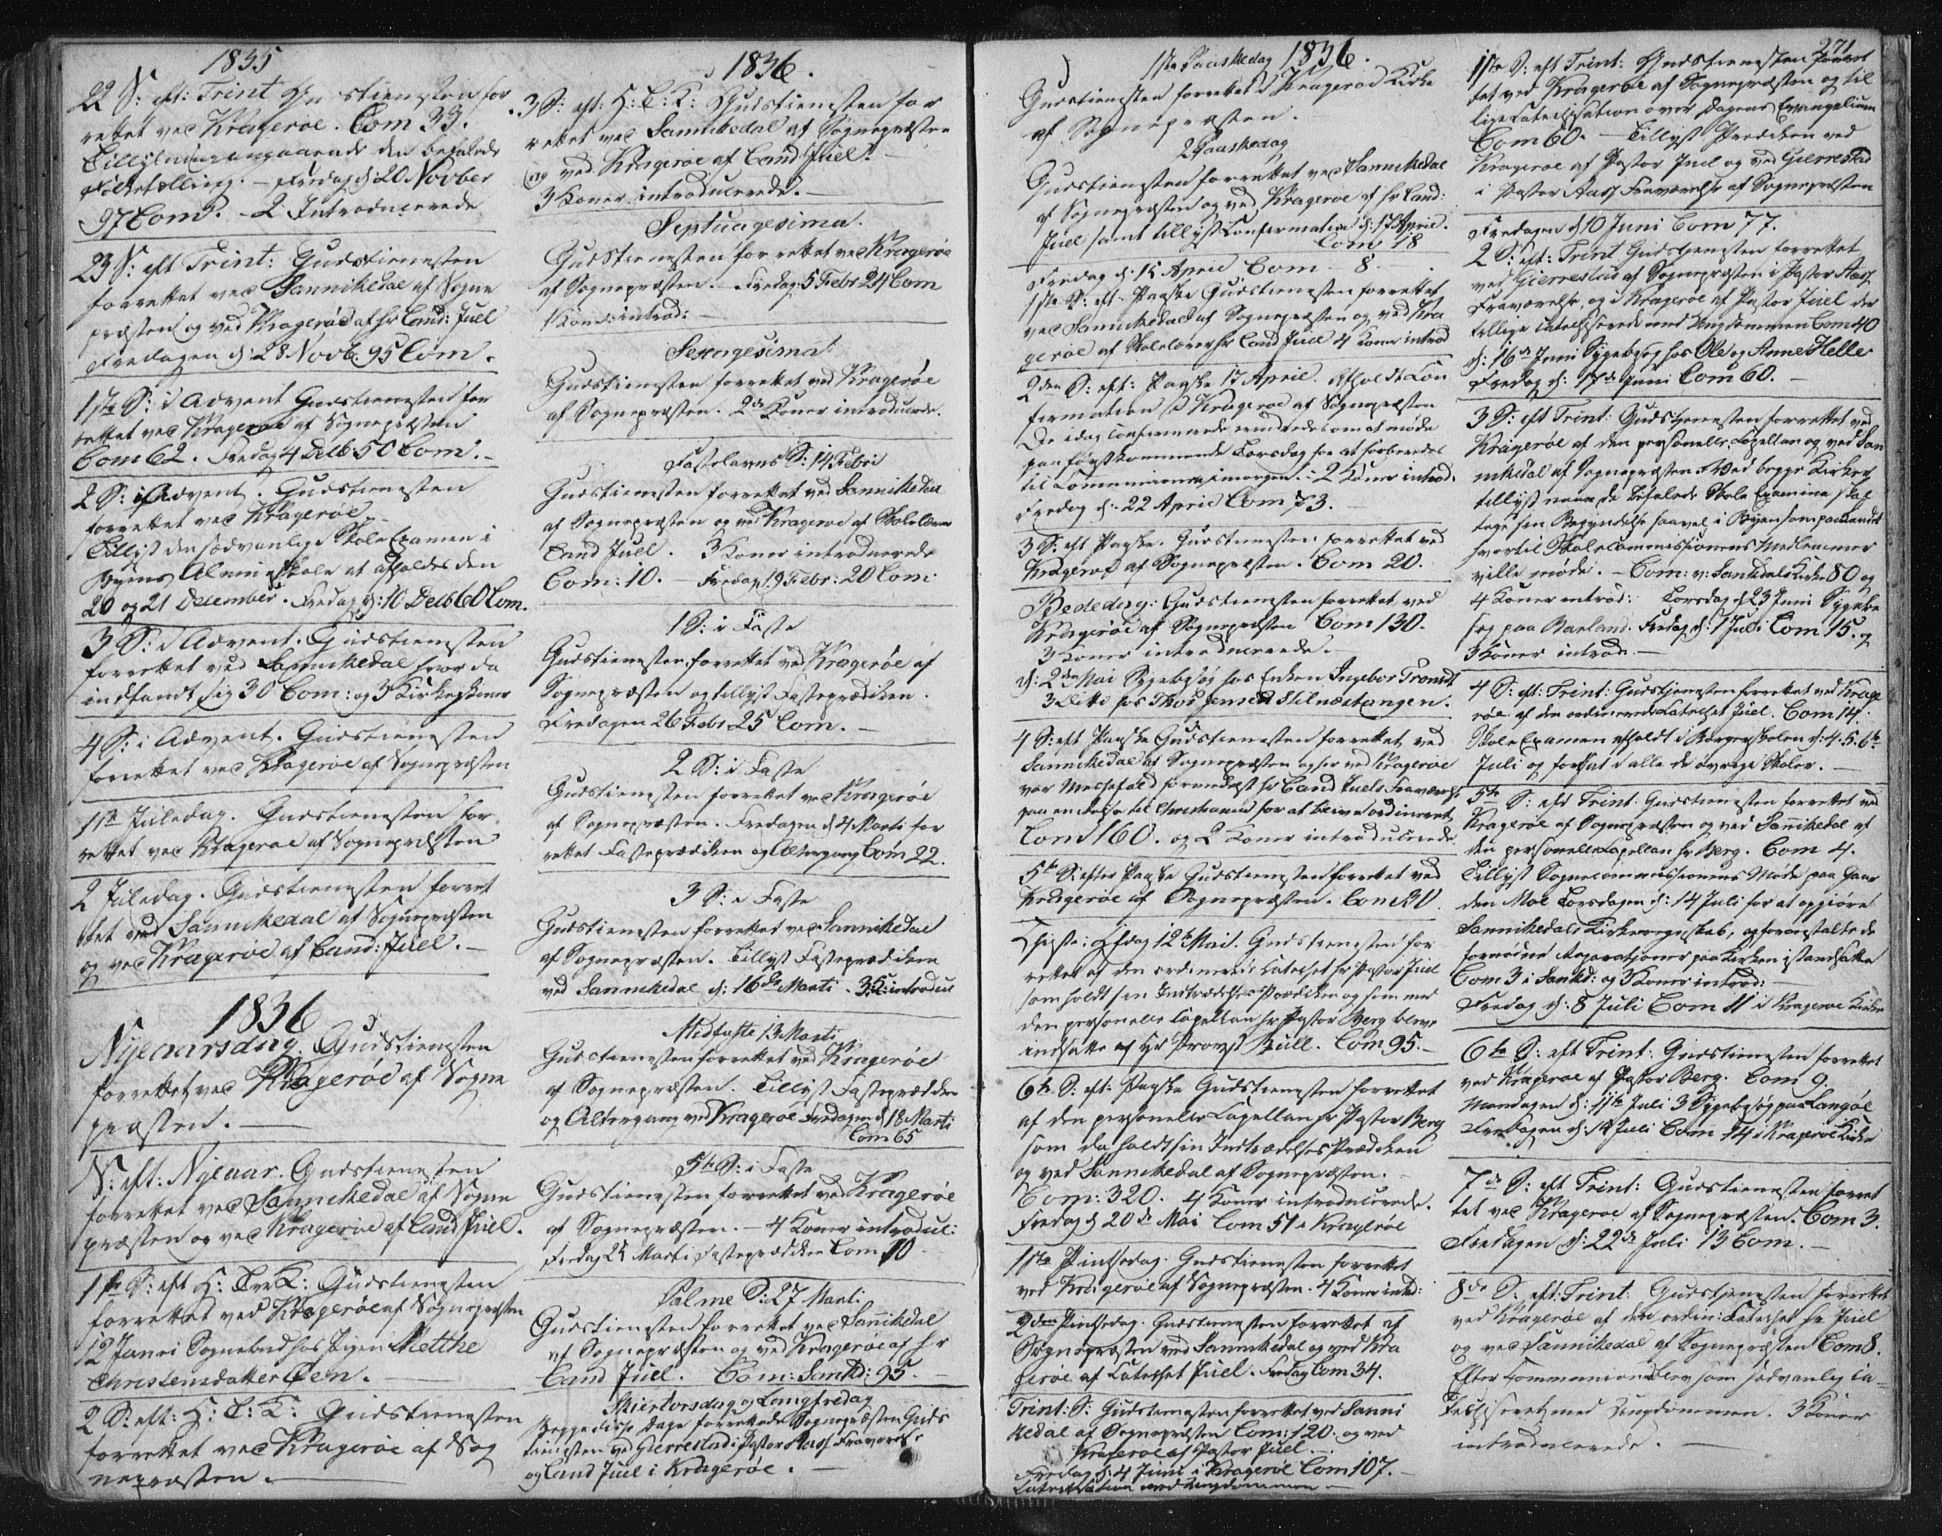 1835
22 S: eft: Trint Gudstienesten for
rettet ved Kragerøe. Com 33.
Tillysning angaaende den befalede
Folketælling. – Fredag d: 20 Novber
97 Com. – 2 Introducerede
23 S: eft Trint: Gudstienesten
forrettet ved Sannikedal af Sogne
præsten og ved Kragerøe af hr Cand: Juel
Fredagen d: 28 Novb. 95 Com.
1ste S: i Advent Gudstienesten for
rettet ved Kragerøe af Sognepræsten
Com 62. Fredag 4 Decb 50 Com. –
2 S: i Advent. Gudstienesten
forrettet ved Kragerøe.
Tillyst den sædvanlige Skole Examen i
Byens Almueskole at afholdes den
20 og 21 December. Fredag d: 10 Decb 60 Com.
3 S: i Advent. Gudstienesten
forrettet ved Sannikedal hvor da
indfandt sig 30 Com: og 3 Kirkegskoner
4 S: i Advent. Gudstienesten
forrettet ved Kragerøe af Sognepræsten
1ste Juledag. Gudstienesten for
rettet ved Kragerøe af Sognepræsten
2 Juledag. Gudstienesten forret
tet ved Sannikedal af Sognepræsten
og ved Kragerøe af Cand: Juel. –
1836
Nyeaarsdag Gudstienesten
forrettet ved Kragerøe af Sogne
præsten. –
S: eft: Nyeaar. Gudstienesten
forrettet ved Sannikedal af Sogne
præsten og ved Kragerøe af Cand Juel.
1ste S: eft H: Tre K: Gudstienesten
forrettet ved Kragerøe af Sognepræsten
12 Janri Sognebud hos Pigen Metthe
Christensdatter Øen. –
2 S: eft: H: T: K: Gudstienesten
forrettet ved Kragerøe af Sog
nepræsten. –
1836.
3 S: eft: H: T: K: Gudstienesten for
rettet ved Sannikedal af Sognepræsten
og ved Kragerøe af Cand Juel. –
3 Koner introducerede. –
Septuagesima.
Gudstienesten forrettet ved Kragerøe
af Sognepræsten. Fredag 5 Febr 24 Com
1 Kone introd:
Sexagesima.
Gudstienesten forrettet ved Kragerøe
af Sognepræsten. 2de Koner introducerde.
Fastelavns S: 14 Febri
Gudstienesten forrettet ved Sannikedal
af Sognepræsten og ved Kragerøe af Skolelærer
Cand Juel. 3 Koner introducerede
Com: 10. Fredag 19 Febr: 20 Com:
1 S: i Faste
Gudstienesten forrettet ved Kragerøe af
Sognepræsten og tillyst Fasteprædiken.
Fredagen 26 Febr 25 Com. –
2 S: i Faste
Gudstienesten forrettet ved Kragerøe
af Sognepræsten. Fredagen d 4 Marti for
rettet Fasteprædiken og Altergang Com 22.
3 S: i Faste
Gudstienesten forrettet ved Sannikedal
af Sognepræsten. Tillyst Fasteprædiken
ved Sannikedal d: 16de Marti. 3 K: introdue
Midfaste 13 Marti
Gudstienesten forrettet ved Kragerøe
af Sognepræsten. Tillyst Fasteprædiken
og Altergang ved Kragerøe Fredagen d 18 Marti
Com 65
5te S: i Faste
Gudstienesten forrettet ved Kragerøe
af Sognepræsten. – 4 Koner introduc:
Fredag 25 Marti Fasteprædiken Com 10
Palme S: 27 Marti
Gudstienesten forrettet ved Sannikedal
af Sognepræsten og ved Kragerøe af hr
Cand Juel. Com: Sankd: 95. –
Skiertorsdag og Langfredag
Begge disse Dage forrettede Sognepræsten Guds
tienesten ved Gierrestad i Pastor Aas's Fraværelse
og Cand Juel i Kragerøe. –
1836.
1ste Paaskedag
Gudstienesten forrettet i Kragerøe Kirke
af Sognepræsten.
2 Paaskedag
Gudstienesten forrettet ved Sannikedal
af Sognepræsten og ved Kragerøe af hr Cand:
Juel samt tillyst Confirmation d: 17 April.
Com 18
Fredag d: 15 April Com. 8.
1ste S: eft. Paaske Gudstienesten forrettet
ved Sannikedal af Sognepræsten og ved Kra
gerøe af Skolelærer hr Cand Juel 4 Koner introd
2den S: eft: Paaske 17 April. Afholdt Con
firmation i Kragerøe af Sognepræsten
De i dag Confirmerede mindedes om at møde
paa førstkommende Torsdag for at forberedes
til Communionen i morgen. – 2 Koner introd.
Fredag d. 22 April Com 73.
3 S: eft Paaske. Gudstienesten forrettet ved
Kragerøe af Sognepræsten. Com 20.
Bededag: Gudstienesten forrettet ved
Kragerøe af Sognepræsten Com 130.
3 Koner introducerede. –
d: 2den Mai Sygebesøg hos Enken Ingebor Tromdt
3 Ditto hos Thor Jensen Stilnæstangen.
4 S: eft Paaske Gudstienesten forrettet ved
Sannikedal af Sognepræsten og her ved Kragerøe
var Messefald formedelst hr Cand Juels Fraværelse
paa en Reise til Christiania for at blive ordineret
Com 160. og 2 Koner introducerede
5te S: efter Paaske Gudstienesten forrettet ved
Kragerøe af Sognepræsten. Com 30
Christi Hfdag 12te Mai. Gudstienesten for
rettet af den ordinerede Catechet hr Pastor Juel
som holdt sin Indtrædelses Prædiken og som med
den personelle Capellan hr Pastor Berg blev
indsatte af Hr Provst Bull. Com 95. –
6te S: eft: Paaske Gudstienesten forrettet
af den personelle Capellan hr Pastor Berg
som da holdt sin Indtrædelses Prædiken
og ved Sannikedal af Sognepræsten.
Com: 320. 4 Koner introducerede.
Fredag d 20de Mai Com 51 i Kragerøe
1ste Pintsedag. Gudstienesten forrettet
ved Kragerøe af Sognepræsten. 4 Koner introd:
2den Pintsedag. Gudstienesten forrettet af
Sognepræsten ved Sannikedal og ved Kra
gerøe af Catechet Juel. Fredag Com 34.
Trint: S: Gudstienesten forrettet ved Sanni
kedal af Sognepræsten Com: 120. og ved
Kragerøe af Pastor Juel. –
Fredag d: 4 Juni i Kragerøe Com 107. –
Catechisation med Ungdommen –
271
1ste S: eft Trint: Gudstienesten forret
tet ved Kragerøe af Sognepræsten og til
lige Catechisation over Dagens Evangelium
Com 60. – Tillyst Prædiken ved
Kragerøe af Pastor Juel og ved Gierrestad
i Pastor Aas's Fraværelse af Sognepræsten
Fredagen d 10 Juni Com 77.
2 S: eft: Trint Gudstienesten forrettet
ved Gierrestad af Sognepræsten i Pastor Aas's
Fraværelse, og i Kragerøe af Pastor Juel der
tillige catechiserede med Ungdommen Com 40
d: 16de Juni Sygebesøg hos Ole og Anne Helle
Fredag d: 17de Juni Com 60. –
3 S: eft Trint: Gudstienesten forrettet ved
Kragerøe af den personelle Capellan og ved San
nikedal af Sognepræsten. Ved begge Kirker
tillyst naar de befalede Skole Examina skal
tage sin Begyndelse saavel i Byen som paa Landet
hvortil Skolecommissionens Medlemmer
ville møde. – Com: v: Sankdals Kirke 80 og
4 Koner introd: Torsdag d 23 Juni Sygebe
søg paa Barland. Fredag d: 1 Juli Com 15. og
3 Koner introd: –
4 S: eft: Trint: Gudstienesten forrettet ved Krage
røe af den ordinerede Catechet Juel. Com 14.
Skole Examen afholdt i Borgerskolen d: 4. 5. 6te
Juli og fortsat i alle de øvrige Skoler. –
5te S: eft Trint: Gudstienesten forrettet ved
Kragerøe af Sognepræsten og ved Sannikedal af
den personelle Capellan hr Berg. Com 4.
Tillyst Sognecommissionens Møde paa Gaar
den Moe Torsdagen d: 14 Juli for at opgjøre
Sannikedals Kirkeregnskab, og foranstalte de
fornødne Reparationer paa Kirken istandsatte
Com 3 i Sankd: og 3 Koner introd: –
Fredag d: 8 Juli Com 11 i Kragerøe Kirke
6te S: eft Trint: Gudstienesten forrettet
ved Kragerøe af Pastor Berg. Com 9.
Mandagen d: 11te Juli 3 Sygebesøg paa Langøe
Fredagen d: 15 Juli Com 14 i Kragerøe Kirke
7de S: eft Trint: Gudstienesten forret
tet ved Kragerøe af Sognepræsten. Com 3.
Fredagen d: 22de Juli 13 Com. –
8de S: eft: Trint: Gudstienesten forrettet
ved Kragerøe af den ordin: Catechet hr Juel
og ved Sannikedal af Sognepræsten Com 8.
Efter Communionen blev som sædvanlig ca-
techiseret med Ungdommen. 3 Koner
introducerede. –